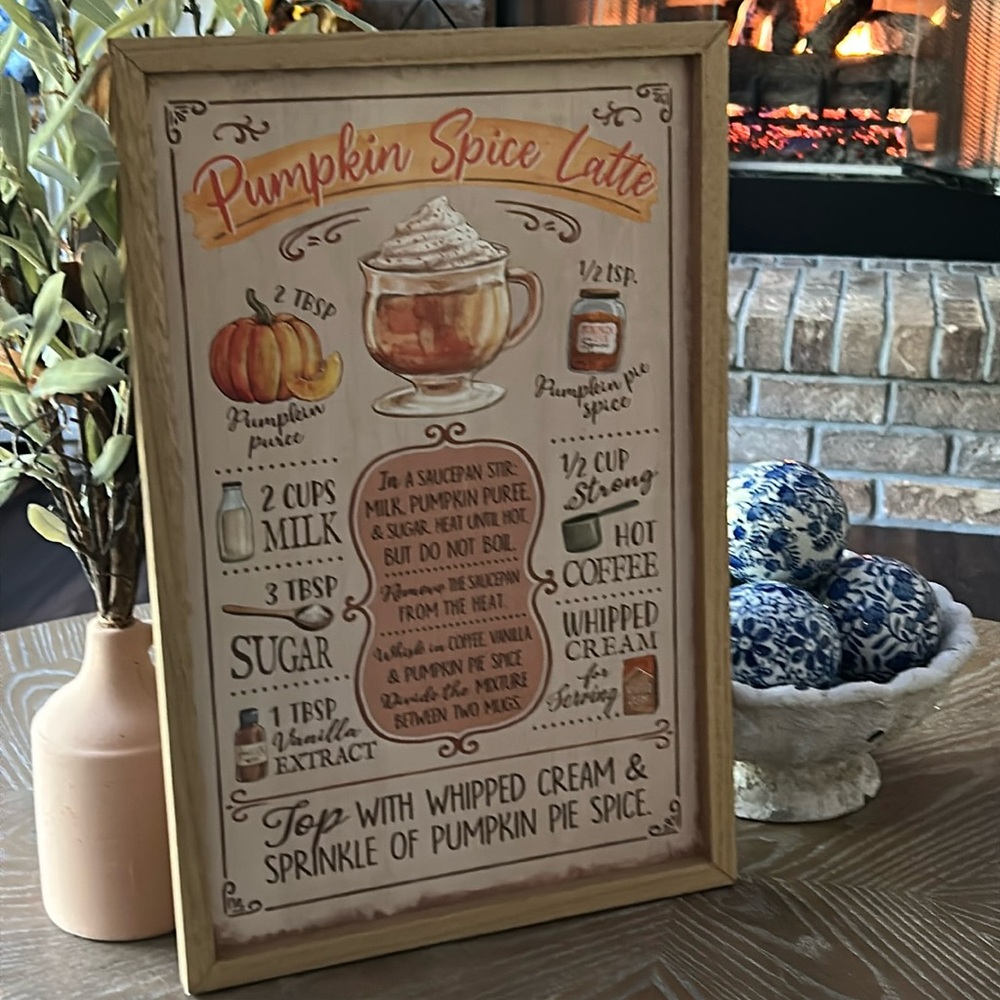 Pumpkin Spice Latte
2 TBSP
Pumpkin
puree
1/2 TSP.
Pumpkin pie
spice
2 CUPS
MILK
3 TBSP
SUGAR
1 TBSP
Vanilla
EXTRACT
In A SAUCEPAN STIR:
MILK, PUMPKIN PUREE,
& SUGAR. HEAT UNTIL HOT,
BUT DO NOT BOIL.
Remove THE SAUCEPAN
FROM THE HEAT.
Whisk in COFFEE, VANILLA
& PUMPKIN PIE SPICE
Divide the MIXTURE
BETWEEN TWO MUGS.
1/2 CUP
Strong
HOT
COFFEE
WHIPPED
CREAM
for
Serving
Top WITH WHIPPED CREAM &
SPRINKLE OF PUMPKIN PIE SPICE.